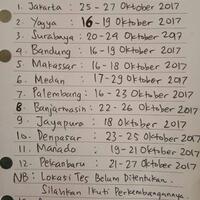 1. Jakarta : 25 - 27 Oktober 2017
2. Yayya : 16 - 19 Oktober 2017
3. Surabaya : 20 - 24 Oktober 2017
4. Bandung : 16 - 19 Oktober 2017
5. Makassar : 16 - 18 Oktober 2017
6. Medan : 17 - 29 Oktober 2017
7. Palembang : 16 - 23 Oktober 2017
8. Banjarmasin : 22 - 26 Oktober 2017
9. Jayapura : 18 Oktober 2017
10. Denpasar : 23 - 25 Oktober 2017
11. Manado : 19 - 21 Oktober 2017
12. Pekanbaru : 21 - 27 Oktober 2017
NB : Lokasi Tes Belum Ditentukan.
Silahkan Ikuti Perkembangannya